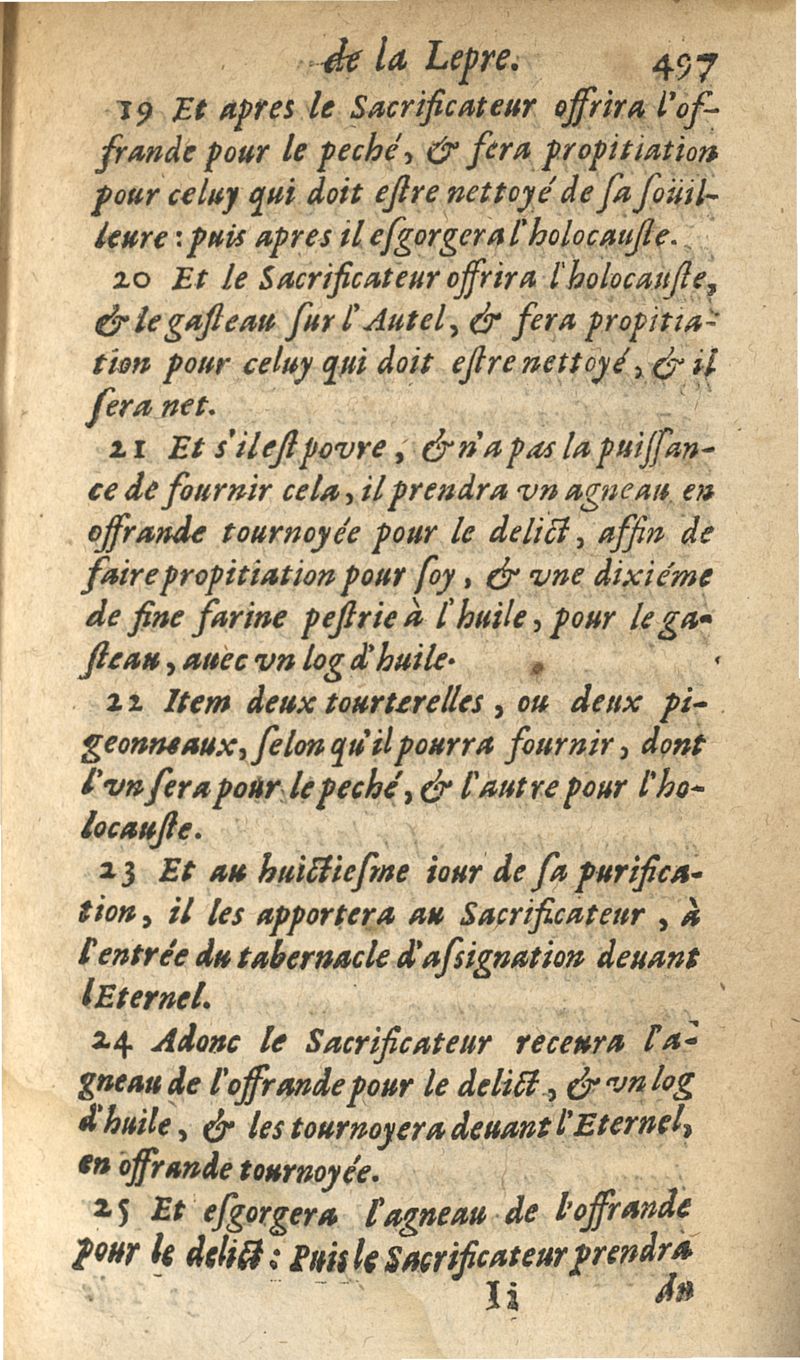 de la Lepre. 497
19 Et apres le Sacrificateur offrira l'of-
frande pour le peché, & fera propitiation
pour celuy qui doit eſtre nettoyé de ſa ſoüil-
leure : puis apres il eſgorgera l'holocauſte.
20 Et le Sacrificateur offrira l'holocauſte,
& le gaſteau ſur l'Autel, & fera propitia-
tion pour celuy qui doit eſtre nettoyé, & il
ſera net.
21 Et s'il eſt povre, & n'a pas la puiſſan-
ce de fournir cela, il prendra vn agneau en
offrande tournoyée pour le delict, affin de
faire propitiation pour ſoy, & vne dixiéme
de fine farine peſtrie à l'huile, pour le ga-
ſteau, auec vn log d'huile.
22 Item deux tourterelles, ou deux pi-
geonneaux, ſelon qu'il pourra fournir, dont
l'vn ſera pour le peché, & l'autre pour l'ho-
locauſte.
23 Et au huictieſme iour de ſa purifica-
tion, il les apportera au Sacrificateur, à
l'entrée du tabernacle d'aſsignation deuant
l'Eternel.
24 Adonc le Sacrificateur receura l'a-
gneau de l'offrande pour le delict, & vn log
d'huile, & les tournoyera deuant l'Eternel,
en offrande tournoyée.
25 Et eſgorgera l'agneau de l'offrande
pour le delict : Puis le Sacrificateur prendra
Ii du